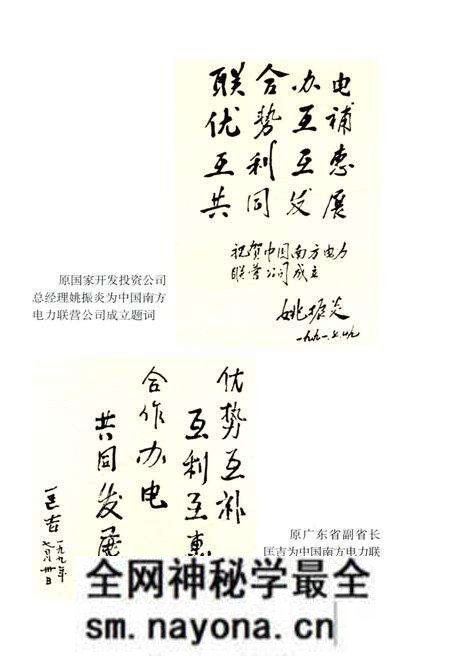 联合办电
优势互补
互利互惠
共同发展
祝贺中国南方电力
联营公司成立
姚振炎
原国家开发投资公司
总经理姚振炎为中国南方
电力联营公司成立题词
优势互补
互利互惠
合作办电
共同发展
匡吉
一九九一年
七月卅日
原广东省副省长
匡吉为中国南方电力联
全网神秘学最全
sm.nayona.cn